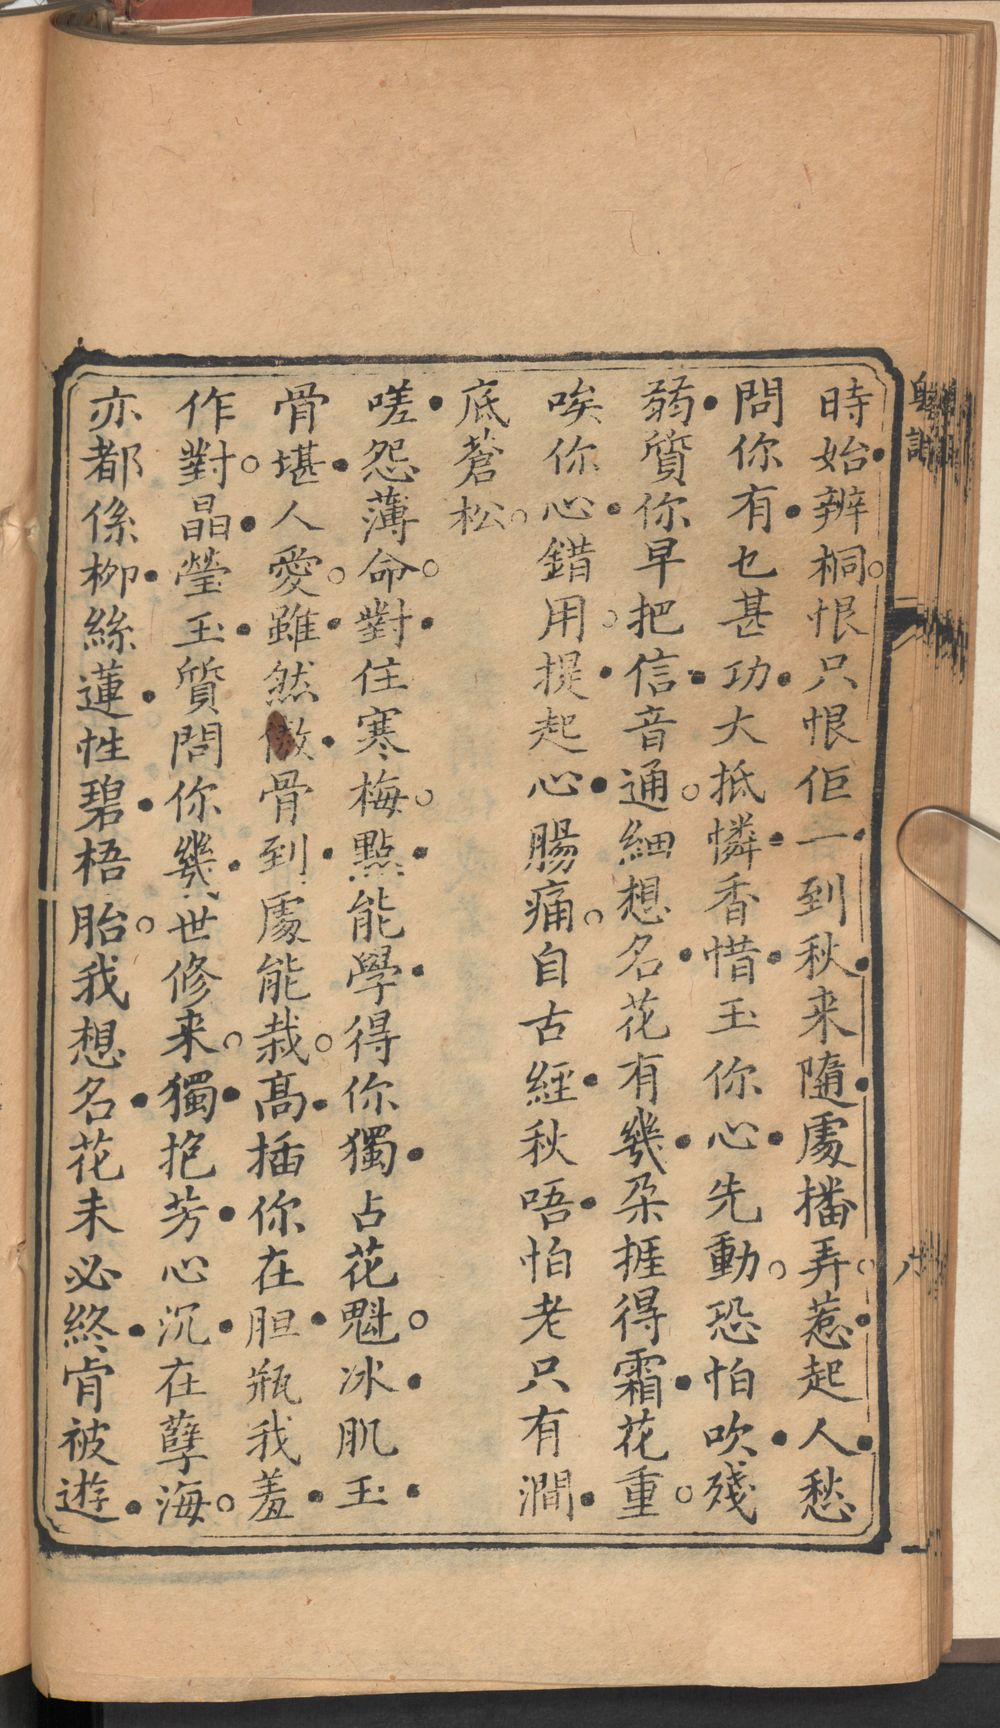 時始辨桐。恨只恨佢一到秋来隨處播弄。惹起人愁
問你有乜甚功大抵憐香惜玉你心先動。恐怕吹殘
弱質你早把信音通。細想名花有幾朶捱得霜花重。
唉你心錯用。提起心腸痛。自古經秋唔怕老只有澗
底蒼松。
嗟怨薄命。對住寒梅。點能學得你獨占花魁。冰肌玉
骨堪人愛。雖然傲骨到處能栽。高插你在胆瓶我羞
作對。晶瑩玉質問你幾世修来。獨抱芳心沉在孽海。
亦都係柳絲蓮性碧梧胎。我想名花未必終肯被遊
八